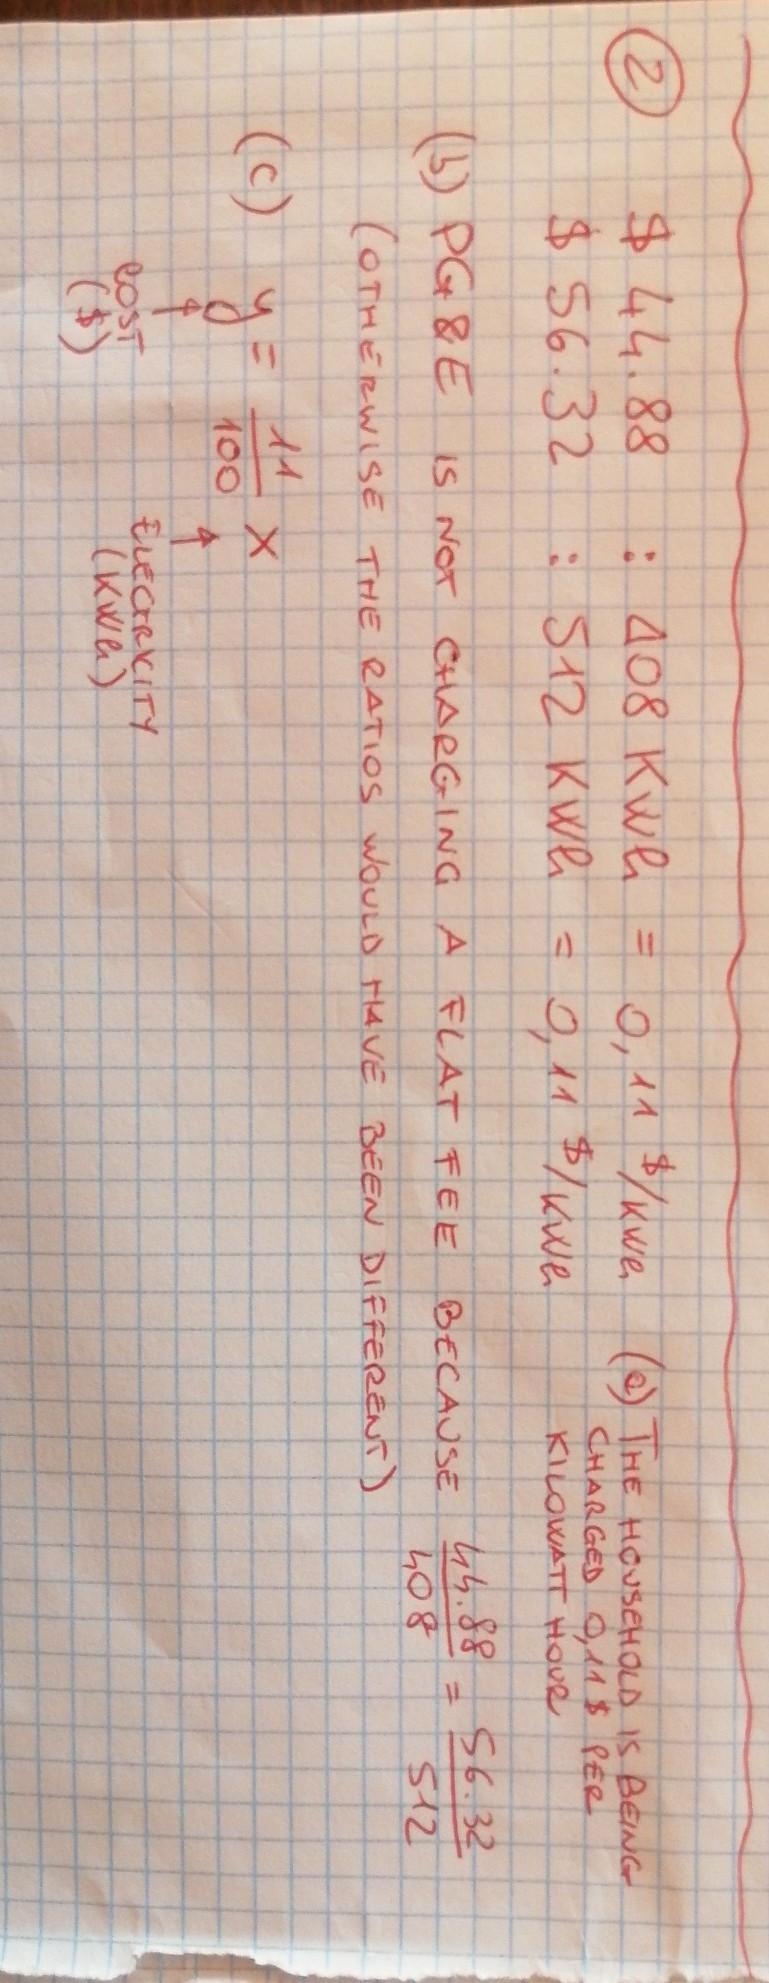 2
$ 44.88 : 408 KWh = 0,11 $/KWh (a) THE HOUSEHOLD IS BEING
CHARGED 0,11 $ PER
$ 56.32 : 512 KWh = 0,11 $/KWh KILOWATT HOUR
(b) PG&E IS NOT CHARGING A FLAT FEE BECAUSE 44.88/408 = 56.32/512
(OTHERWISE THE RATIOS WOULD HAVE BEEN DIFFERENT)
(c) y = 11/100 x
COST ELECTRICITY
($) (KWh)